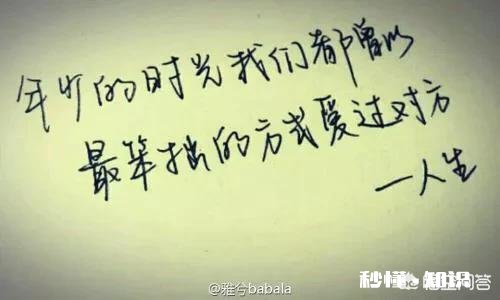 年少的时光我们都曾以
最笨拙的方式爱过对方
一人生
@雅兮babala
秒懂·知识